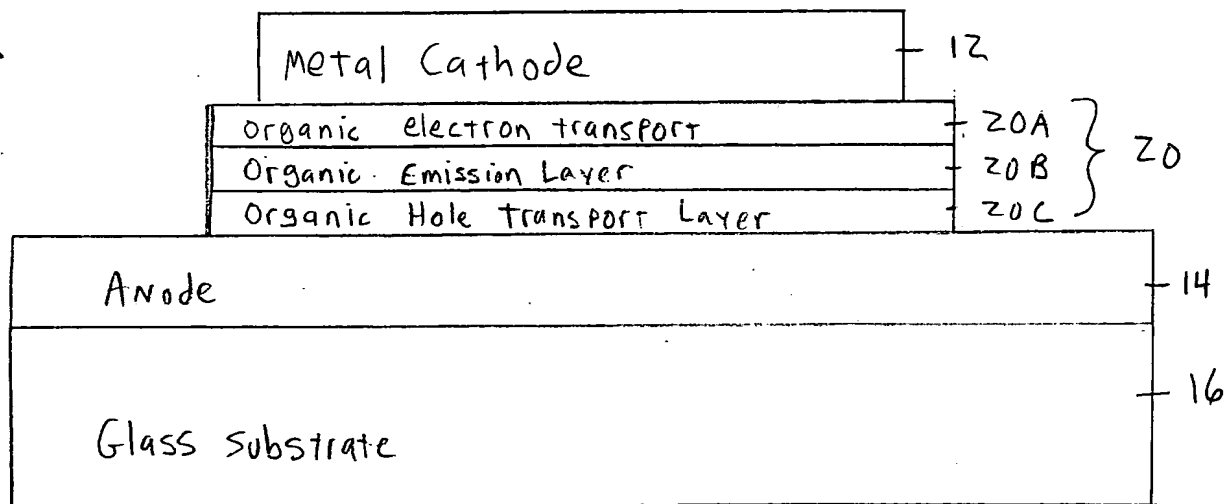 Metal Cathode 12
organic electron transport 20A
Organic Emission Layer 20B
Organic Hole Transport Layer 20C
20
Anode 14
Glass Substrate 16